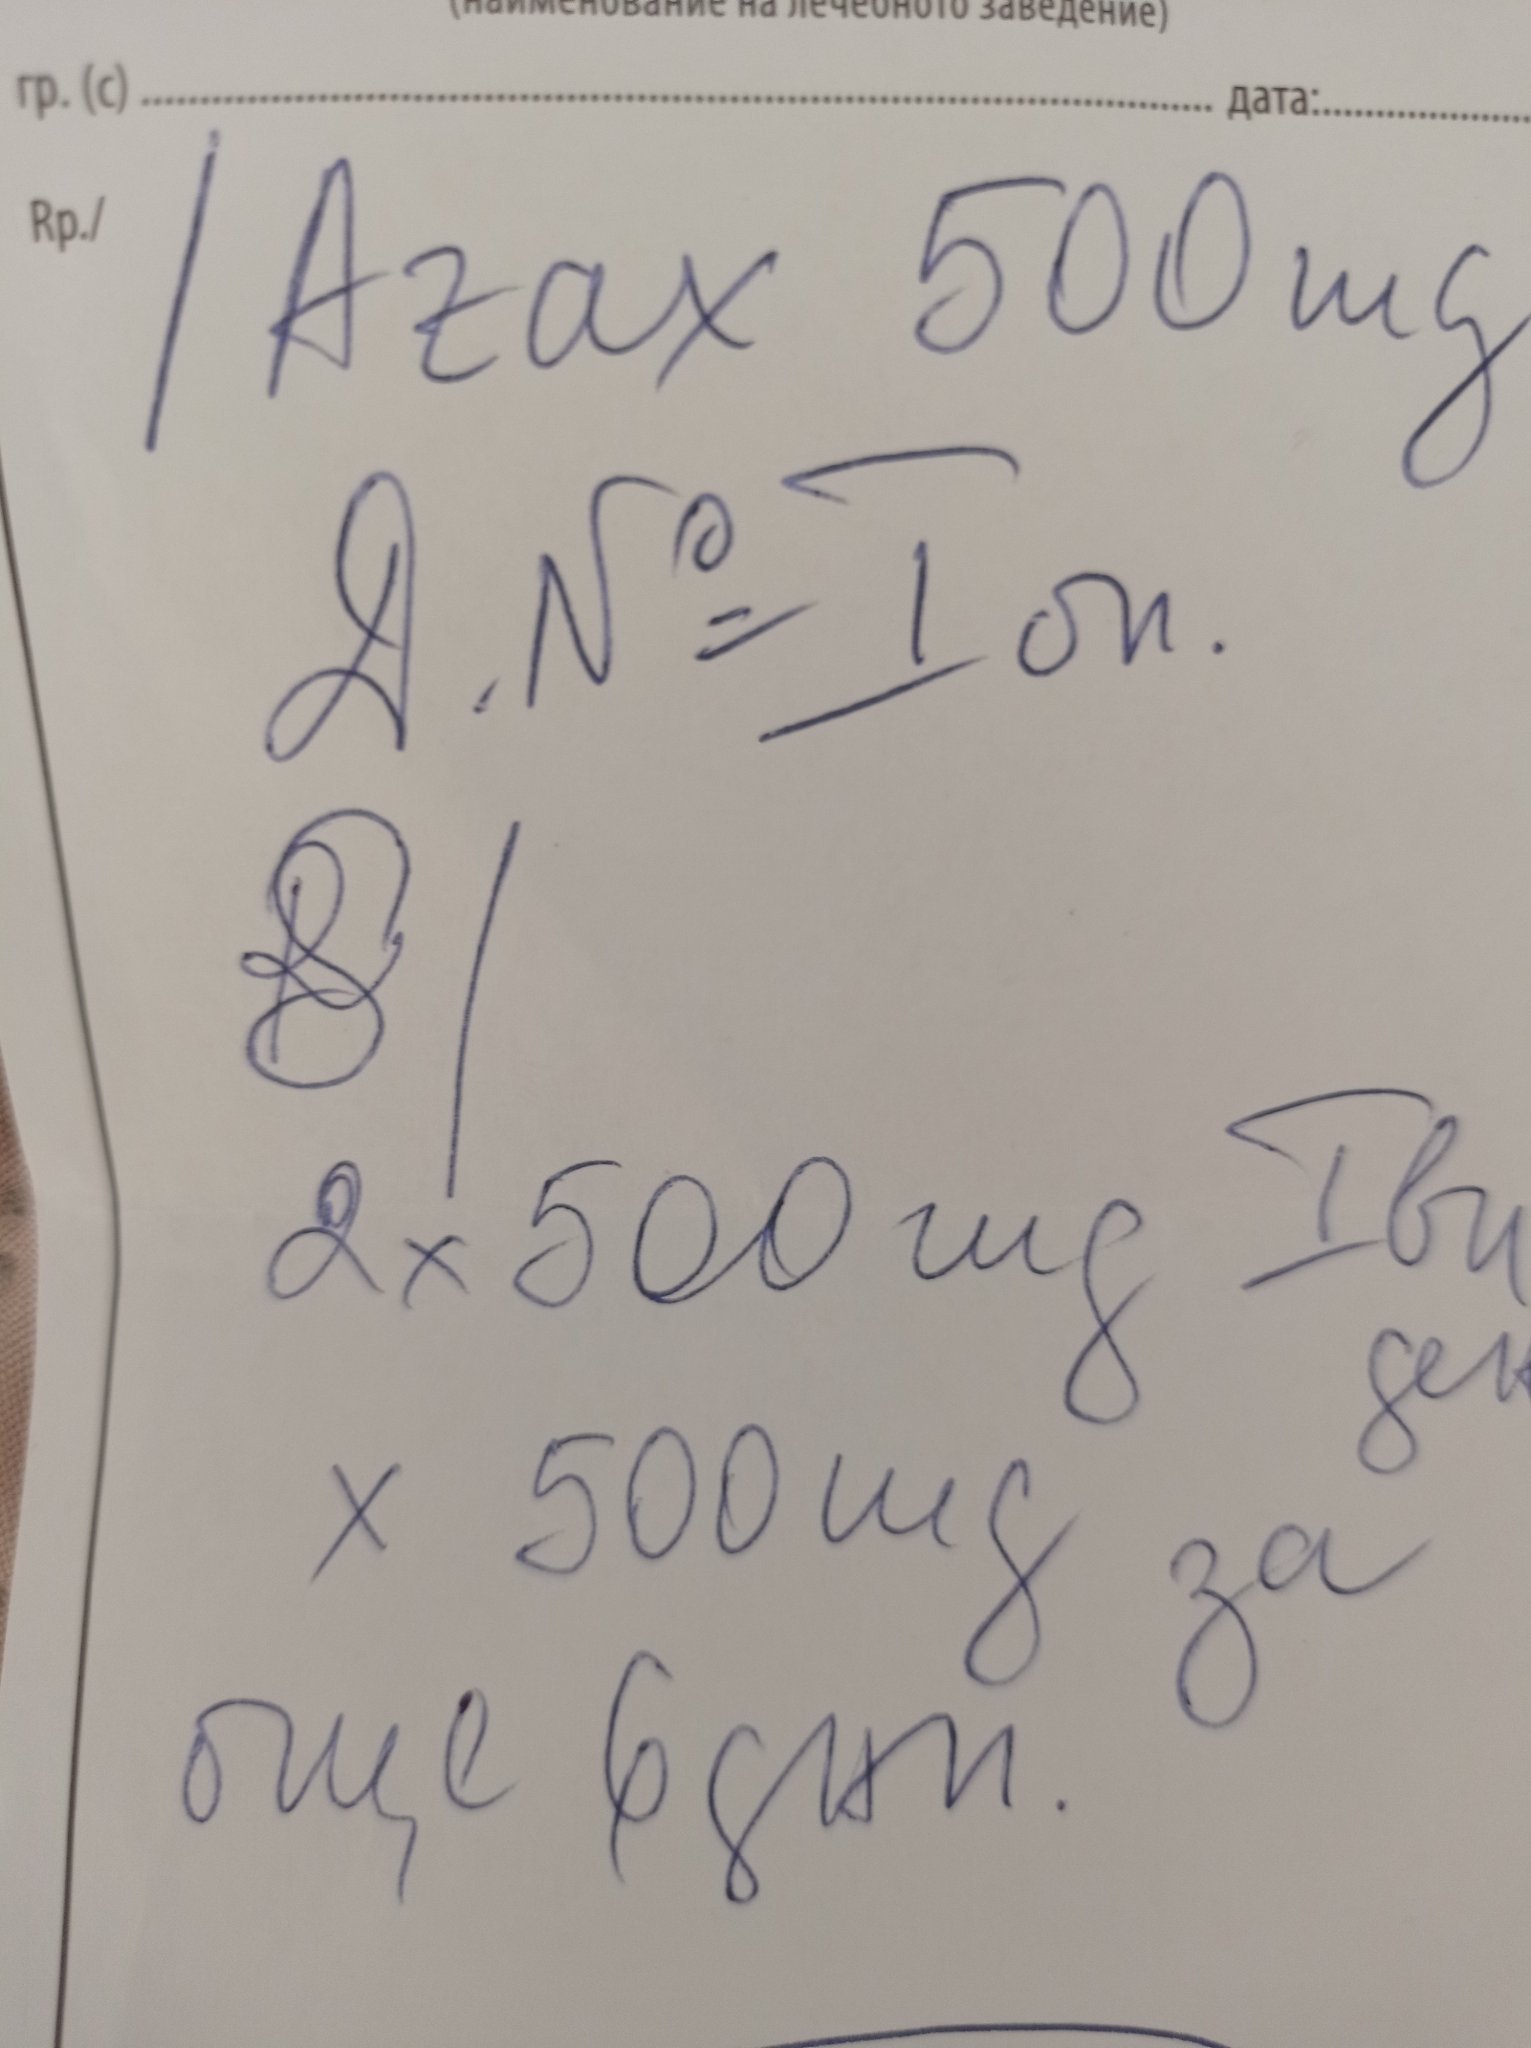 (наименование на лечебното заведение)
гр. (с) ........................ дата:............
Rp./
/ Azax 500mg
D. № I оп.
S/
2x 500mg I ви
ден
x 500mg за
още 6 дни.